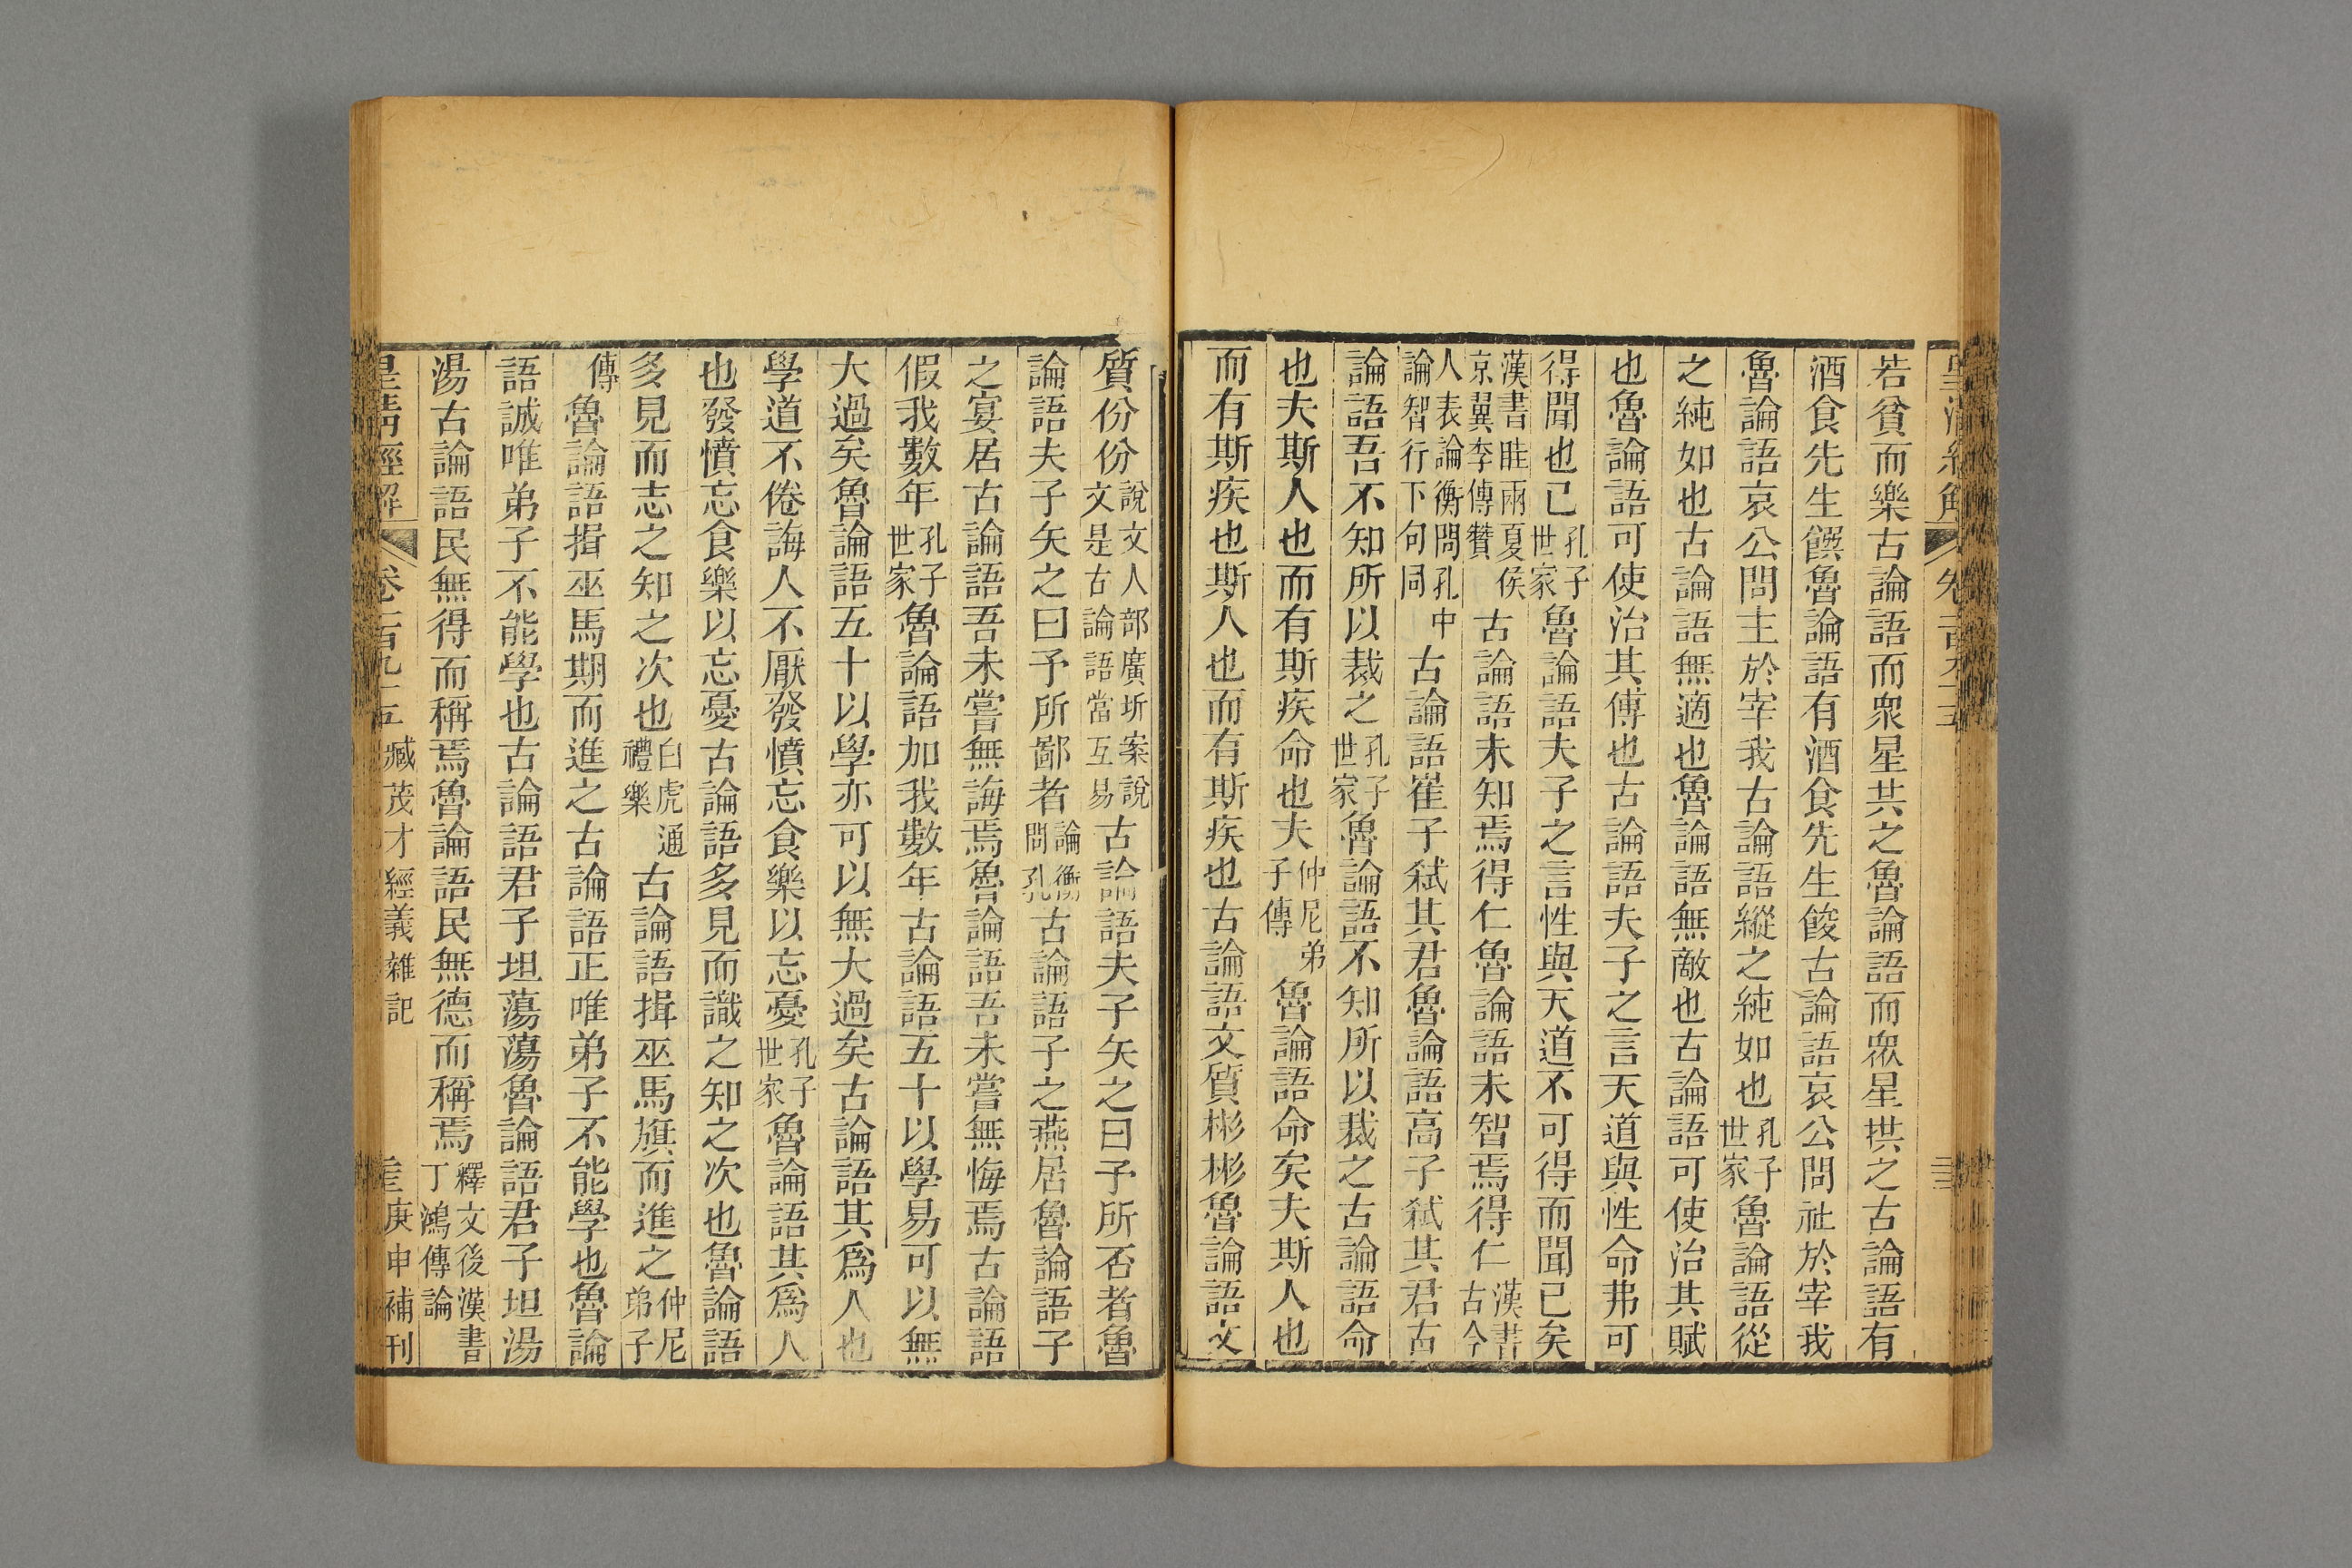 若貧而樂古論語而衆星共之魯論語而衆星拱之古論語有
酒食先生饌魯論語有酒食先生餕古論語哀公問社於宰我
魯論語哀公問主於宰我古論語縱之純如也孔子世家魯論語從
之純如也古論語無適也魯論語無敵也古論語可使治其賦
也魯論語可使治其傅也古論語夫子之言天道與性命弗可
得聞也已孔子世家魯論語夫子之言性與天道不可得而聞已矣
漢書眭兩夏侯京翼李傳贊古論語未知焉得仁魯論語未智焉得仁漢書古今
人表論衡問孔論智行下句同中古論語崔子弑其君魯論語高子弑其君古
論語吾不知所以裁之孔子世家魯論語不知所以裁之古論語命
也夫斯人也而有斯疾命也夫仲尼弟子傳魯論語命矣夫斯人也
而有斯疾也斯人也而有斯疾也古論語文質彬彬魯論語文
質份份說文人部廣圻案說文是古論語當互易古論語夫子矢之曰予所否者魯
論語夫子矢之曰予所鄙者論衡問孔古論語子之燕居魯論語子
之宴居古論語吾未嘗無誨焉魯論語吾未嘗無悔焉古論語
假我數年孔子世家魯論語加我數年古論語五十以學易可以無
大過矣魯論語五十以學亦可以無大過矣古論語其爲人也
學道不倦誨人不厭發憤忘食樂以忘憂孔子世家魯論語其爲人
也發憤忘食樂以忘憂古論語多見而識之知之次也魯論語
多見而志之知之次也白虎通禮樂古論語揖巫馬旗而進之仲尼弟子
傳魯論語揖巫馬期而進之古論語正唯弟子不能學也魯論
語誠唯弟子不能學也古論語君子坦蕩蕩魯論語君子坦湯
湯古論語民無得而稱焉魯論語民無德而稱焉釋文後漢書丁鴻傳論
皇清經解 卷一百九十五 臧茂才經義雜記 庚申補刊